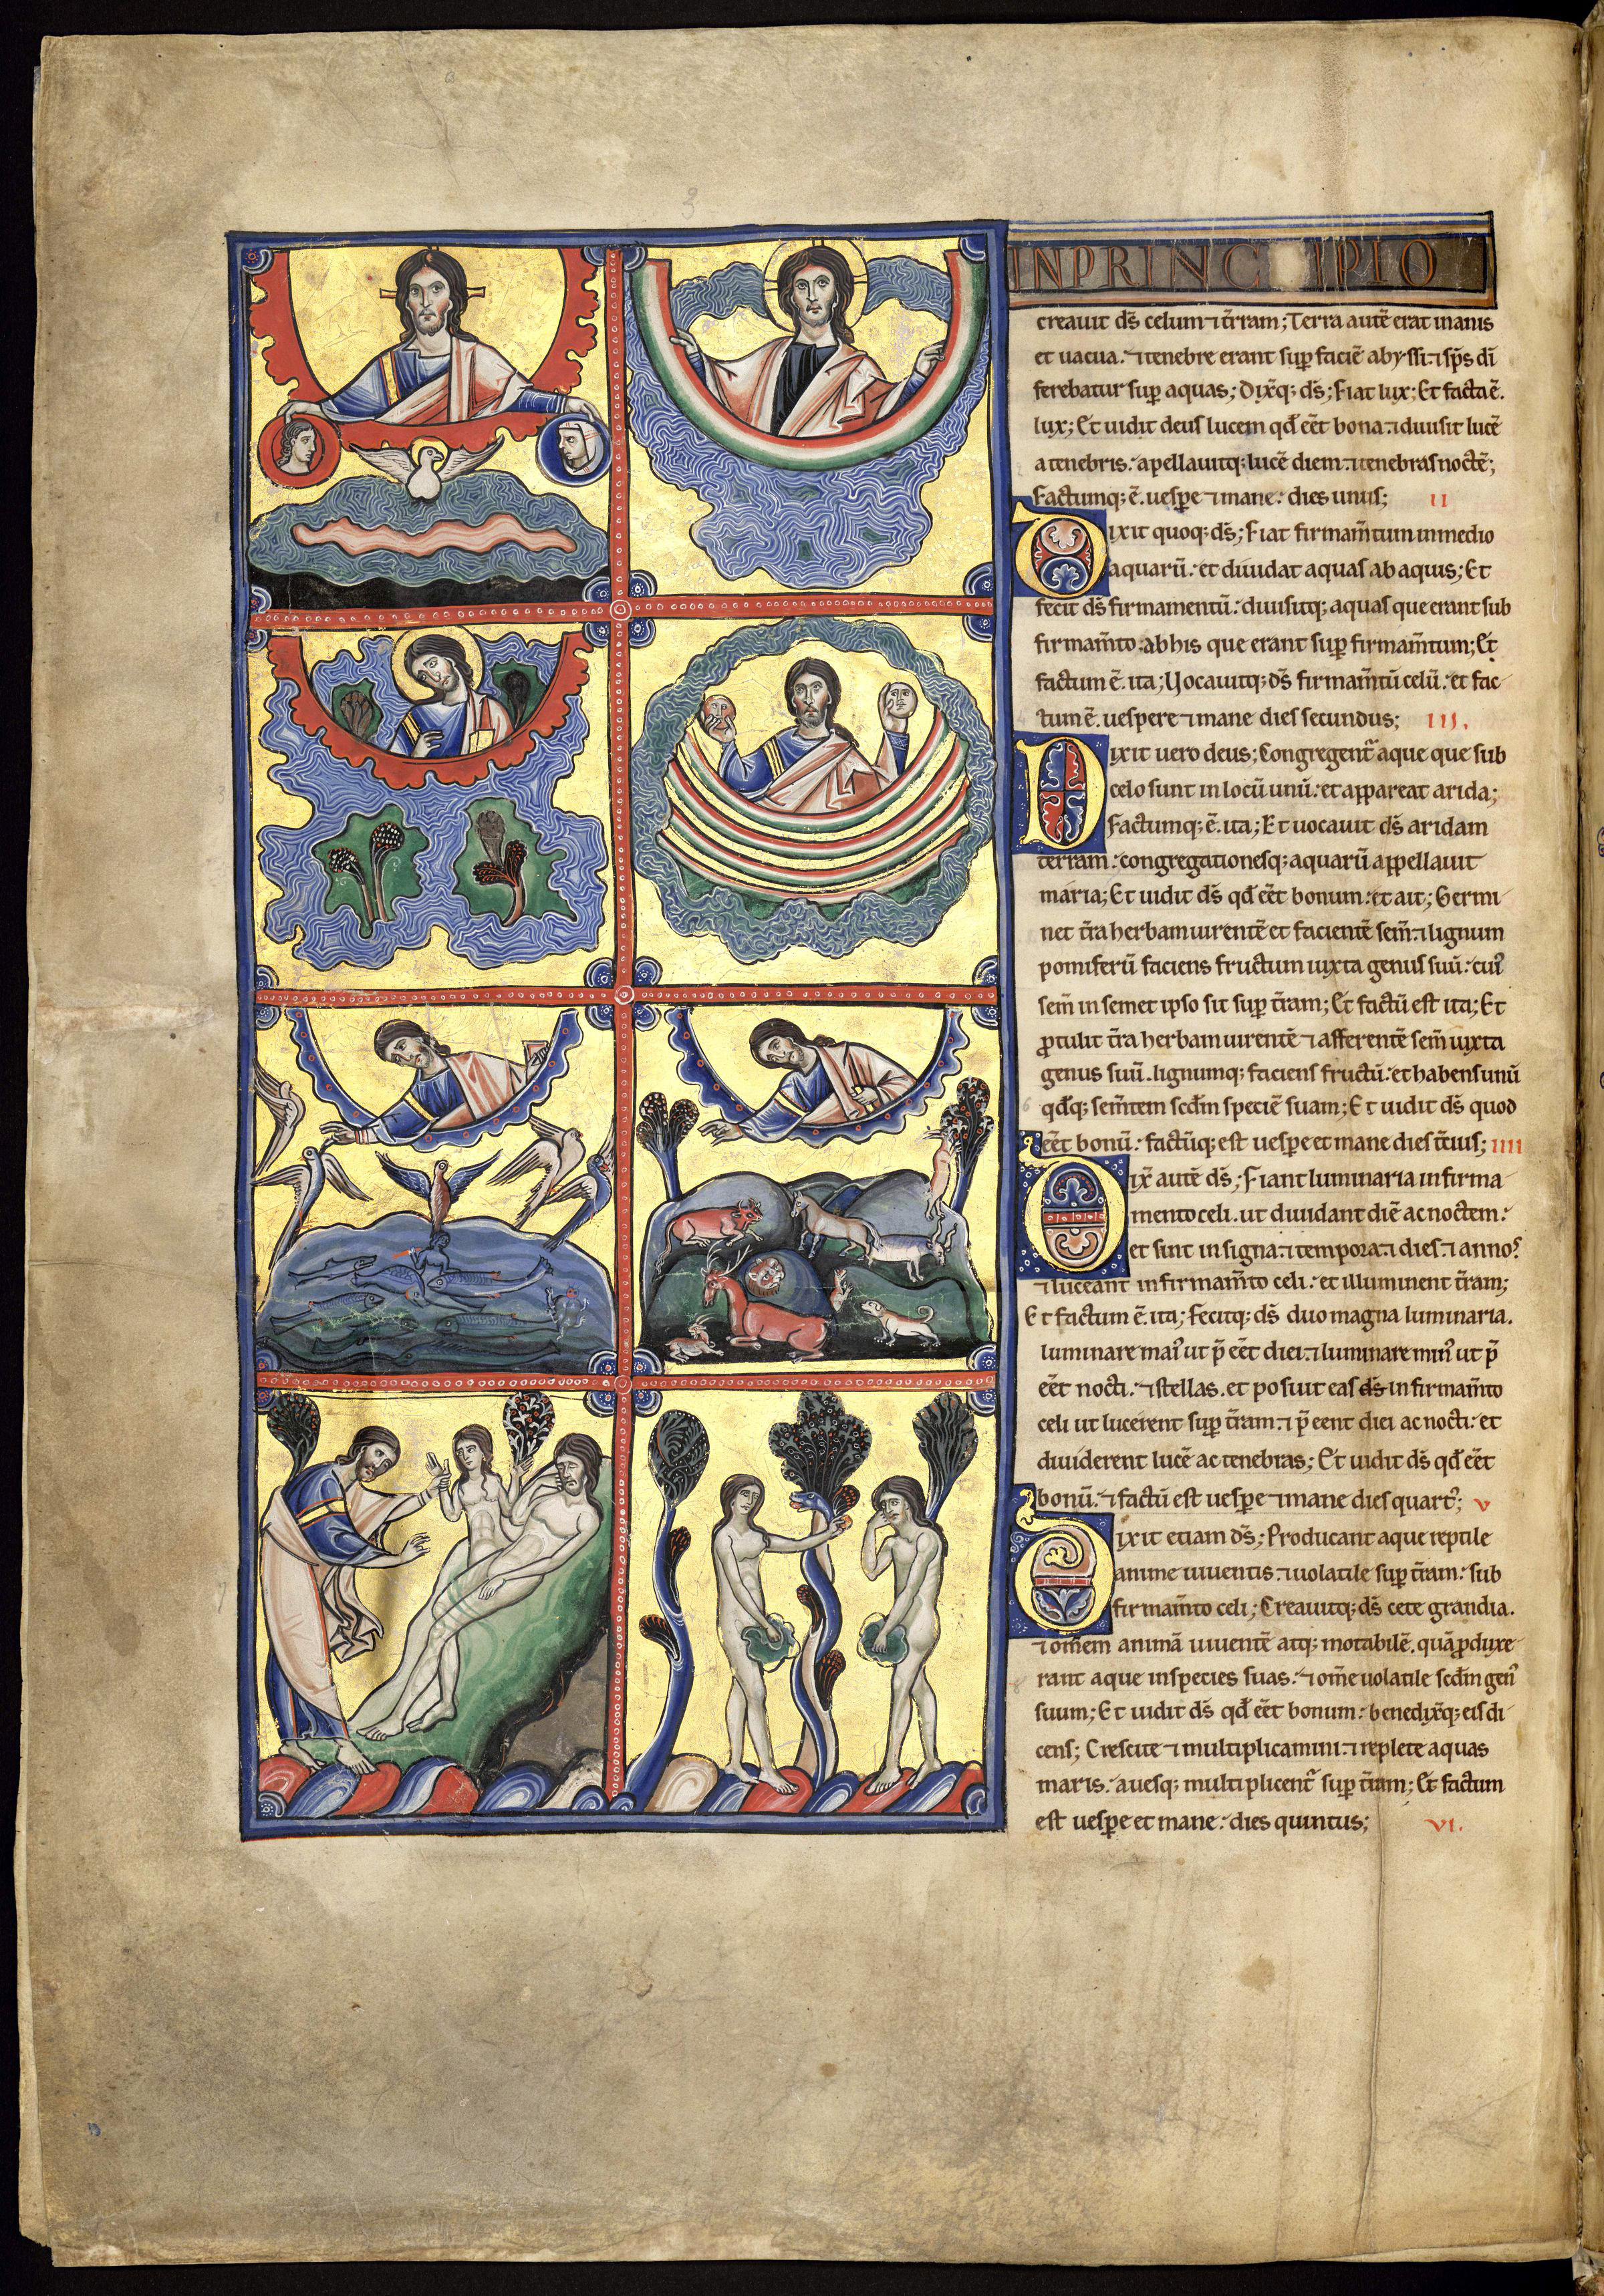 INPRINCIPIO
creauit ds̄ celum ⁊ t̄rram; Terra autē erat inanis
et uacua. ⁊ tenebre erant sup̱ faciē abyssi. ⁊ sp̄s dī
ferebatur sup̱ aquas; Dix̄q; ds̄; Fiat lux; Et facta ē.
lux; Et uidit deus lucem qđ eēt bona. ⁊ diuisit lucē
a tenebris. apellauitq; lucē diem. ⁊ tenebras noctē;
Factumq; ē. uesp̱e ⁊ mane. dies unus; II
Dixit quoq; ds̄; Fiat firmam̄tum in medio
aquarū. et diuidat aquas ab aquis; Et
fecit ds̄ firmamentū. diuisitq; aquas que erant sub
firmam̄to. ab his que erant sup̱ firmam̄tum; Et
factum ē. ita; Vocauitq; ds̄ firmam̄tū celū. et fac
tum ē. uespere ⁊ mane dies secundus; III.
Dixit uero deus; Congregent᷑ aque que sub
celo sunt in locū unū. et appareat arida;
Factumq; ē. ita; Et uocauit ds̄ aridam
terram. congregationesq; aquarū appellauit
maria; Et uidit ds̄ qđ eēt bonum. et ait; Germi
net t̄ra herbam uirentē et facientē sem̄. ⁊ lignum
pomiferū faciens fructum iuxta genus suū. cuiꝰ
sem̄ in semet ipso sit sup̱ t̄ram; Et factū est ita; Et
ꝓtulit t̄ra herbam uirentē ⁊ afferentē sem̄ iuxta
genus suū. lignumq; faciens fructū. et habens unū
qđq; sem̄tem scđm speciē suam; Et uidit ds̄ quod
eēt bonū. factūq; est uesp̱e et mane dies t̄tius; IIII
Dix̄ autē ds̄; Fiant luminaria in firma
mento celi. ut diuidant diē ac noctem.
et sint in signa. ⁊ tempora. ⁊ dies. ⁊ annoꝰ
⁊ luceant in firmam̄to celi. et illuminent t̄ram;
Et factum ē. ita; Fecitq; ds̄ duo magna luminaria.
luminare maiꝰ ut p̄ eēt diei. ⁊ luminare minꝰ ut p̄
eēt nocti. ⁊ stellas. et posuit eas ds̄ in firmam̄to
celi ut lucerent sup̱ t̄ram. ⁊ p̄ eent diei ac nocti. et
diuiderent lucē ac tenebras; Et uidit ds̄ qđ eēt
bonū. ⁊ factū est uesp̱e ⁊ mane dies quartꝰ; V
Dixit etiam ds̄; Producant aque reptile
anime uiuentis. ⁊ uolatile sup̱ t̄ram. sub
firmam̄to celi; Creauitq; ds̄ cete grandia.
⁊ om̄em animā uiuentē atq; motabilē. quā ꝓduxe
rant aque in species suas. ⁊ om̄e uolatile scđm genꝰ
suum; Et uidit ds̄ qđ eēt bonum. benedix̄q; eis di
cens; Crescite ⁊ multiplicamini. ⁊ replete aquas
maris. auesq; multiplicent᷑ sup̱ t̄ram; Et factum
est uesp̱e et mane. dies quintus; VI.